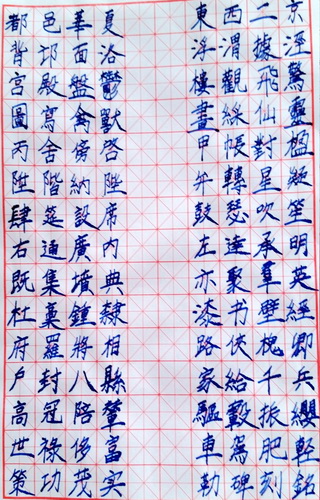 都邑華夏 東西二京
背邙面洛 浮渭據涇
宮殿盤鬱 樓觀飛驚
圖寫禽獸 畫綵仙靈
丙舍傍啓 甲帳對楹
陞階納陛 弁轉星凝
肆筵設席 鼓瑟吹笙
右通廣内 左達承明
既集墳典 亦聚羣英
杜稾鍾隸 漆书壁經
府羅將相 路俠槐卿
户封八縣 家給千兵
高冠陪輦 驅轂振纓
世祿侈富 車駕肥輕
策功茂实 勒碑刻銘